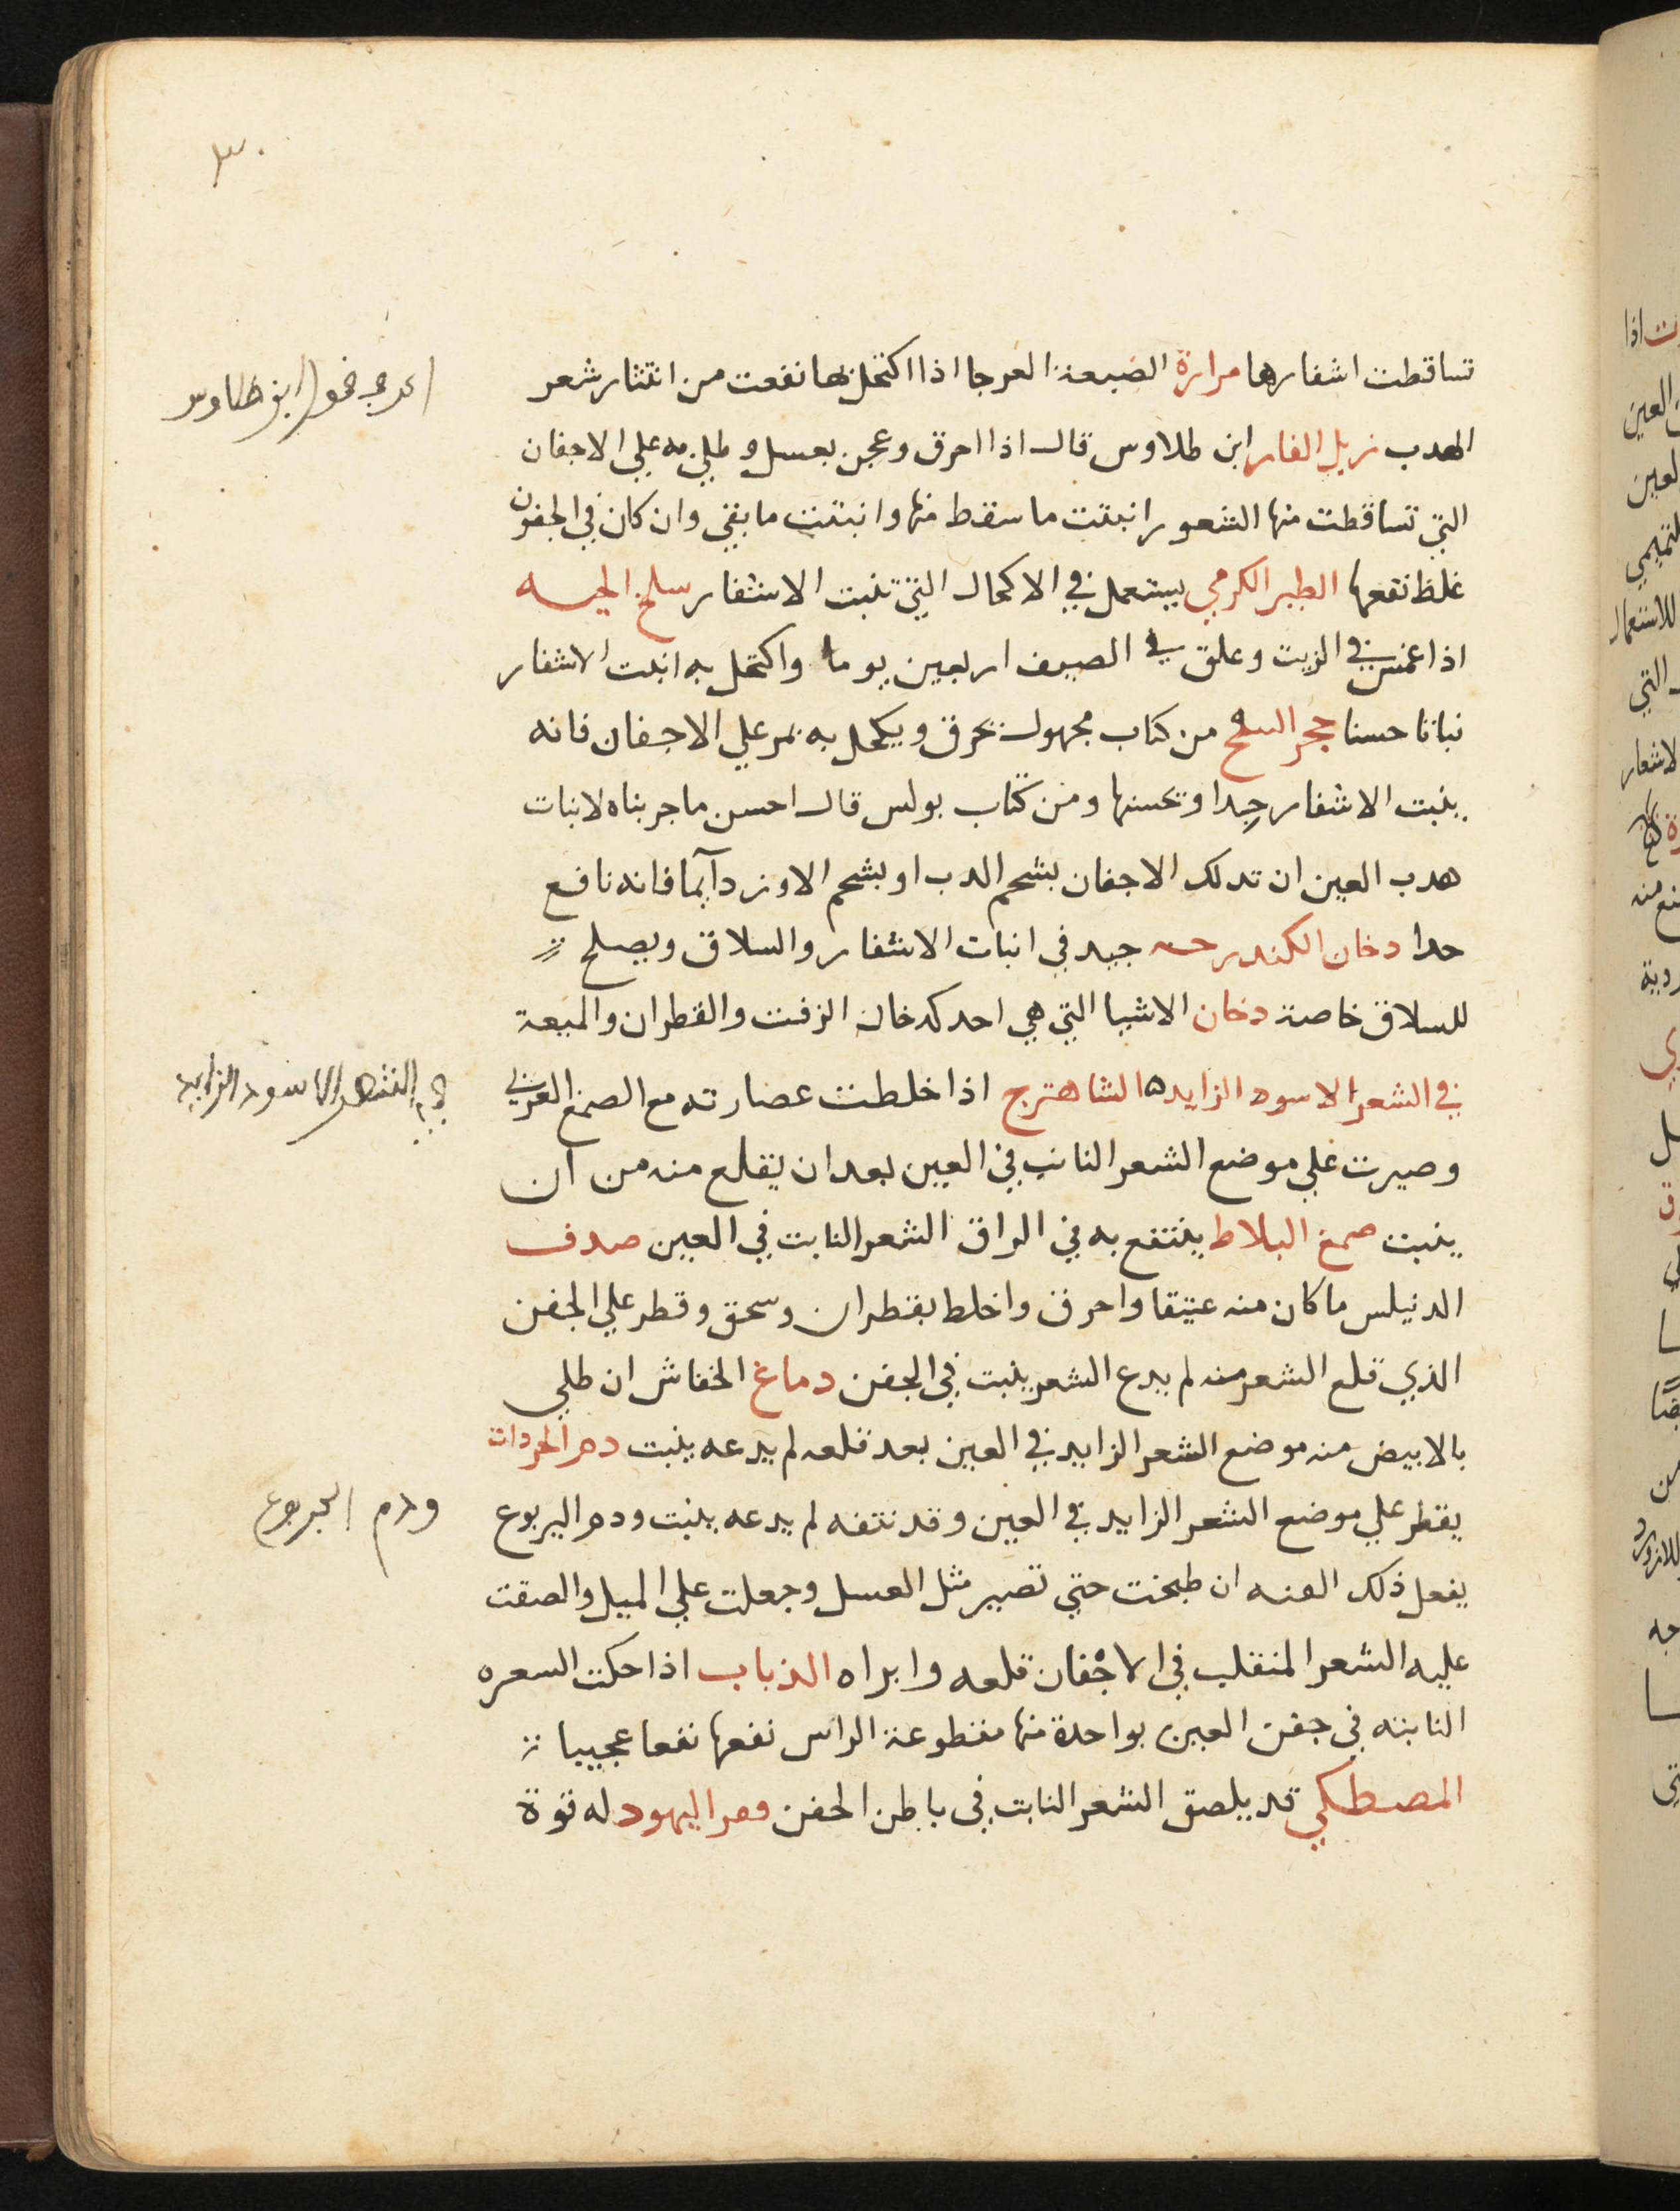 ٣٠
تساقطت اشفارها مرارة الضبعة العرجا اذا اكتحل بها نفعت من انتثار شعر
الهدب زبل الفار ابن طلاوس قال اذا احرق وعجن بعسل وطلي به علي الاجفان
التي تساقطت منها الشعور انبتت ما سقط منها وانبتت ما بقي وان كان في الجفون
غلظ نفعها الطبر الكرمي يستعمل في الاكحال التي تنبت الاشفار سلخ الحيه
اذا غمس في الزيت وعلق في الصيف اربعين يوما واكتحل به انبت الاشفار
نباتا حسنا حجر السلح من كتاب مجهول تحرق ويكحل به يمر علي الاجفان فانه
ينبت الاشفار جيدا وتحسنها ومن كتاب بولس قال احسن ما جربناه لانبات
هدب العين ان تدلك الاجفان بشحم الدب او بشحم الاوز دآيما فانه نافع
جدا دخان الكندر جيد في انبات الاشفار والسلاق ويصلح
للسلاق خاصة دخان الاشيا التي هي احد كدخان الزفت والقطران والميعة
في الشعر الاسود الزايد ه الشاهترج اذا خلطت عصارته مع الصمغ العربي
وصيرت علي موضع الشعر النابت في العين بعد ان يقلع منه من ان
ينبت صمغ البلاط ينتفع به في الزاق الشعر النابت في العين صدف
الدنيلس ما كان منه عتيقا واحرق واخلط بقطران وسحق وقطر علي الجفن
الذي قلع الشعر منه لم يدع الشعر ينبت في الجفن دماغ الخفاش ان طلي
بالابيض منه موضع الشعر الزايد في العين بعد قلعه لم يدعه ينبت دم
يقطر علي موضع الشعر الزايد في العين وقد نتفه لم يدعه ينبت ودم اليربوع
يفعل ذلك العنه ان طبخت حتي تصير مثل العسل وجعلت علي الميل والصقت
عليه الشعر المنقلب في الاجفان قلعه وابراه الذباب اذا حكت الشعره
النابته في جفن العين بواحدة منها مقطوعة الراس نفعها نفعا عجيبا
المصطكي قد يلصق الشعر النابت في باطن الجفن قفر اليهود له قوة
ابن طلاوس
الشعر الاسود الزايد
ودم اليربوع